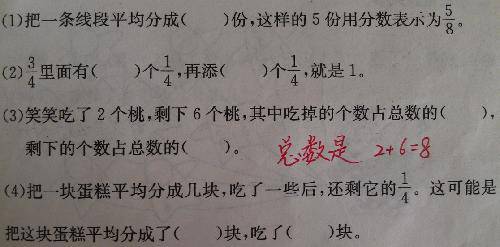 (1)把一条线段平均分成(　　)份,这样的5份用分数表示为5/8。
(2)3/4里面有(　　)个1/4,再添(　　)个1/4,就是1。
(3)笑笑吃了2个桃,剩下6个桃,其中吃掉的个数占总数的(　　),
剩下的个数占总数的(　　)。 总数是 2+6=8
(4)把一块蛋糕平均分成几块,吃了一些后,还剩它的1/4。这可能是
把这块蛋糕平均分成了(　　)块,吃了(　　)块。